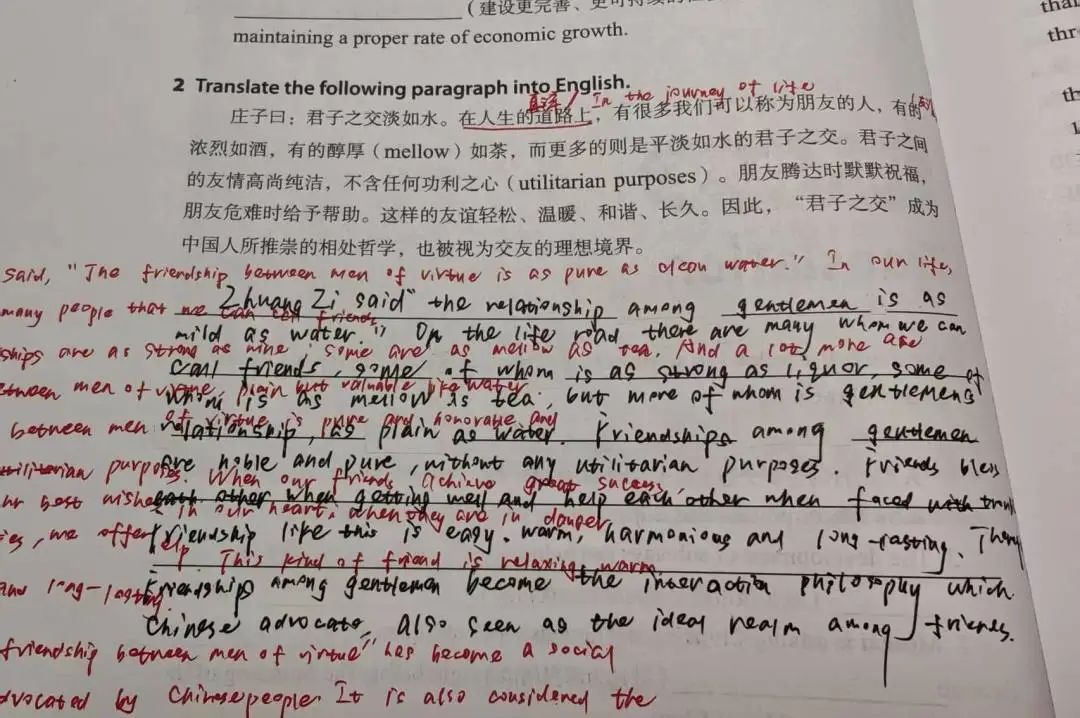 （建设更完善、更可持续的
maintaining a proper rate of economic growth.
2 Translate the following paragraph into English.
直译/ In the journey of life
庄子曰：君子之交淡如水。在人生的道路上，有很多我们可以称为朋友的人，有的
浓烈如酒，有的醇厚（mellow）如茶，而更多的则是平淡如水的君子之交。君子之间
的友情高尚纯洁，不含任何功利之心（utilitarian purposes）。朋友腾达时默默祝福，
朋友危难时给予帮助。这样的友谊轻松、温暖、和谐、长久。因此，“君子之交”成为
中国人所推崇的相处哲学，也被视为交友的理想境界。
said, "The friendship between men of virtue is as pure as water." In our life,
Zhuang Zi said "the relationship among gentlemen is as
many people that we can call friends
mild as water." On the life road there are many whom we can
ships are as strong as wine, some are as mellow as tea. And a lot more are
call friends, some of whom is as strong as liquor, some of
between men of virtue, plain but valuable like water
whom is as mellow as tea, but more of whom is gentlemens'
between men of virtue is pure and honorable and
relationship, as plain as water. Friendships among gentlemen
utilitarian purposes. When our friends achieve great success
are noble and pure, without any utilitarian purposes. Friends bless
ur best wishes in our heart, when they are in danger
each other when getting well and help each other when faced with
ies, we offer help. This kind of friend is relaxing, warm
Friendship like this is easy, warm, harmonious and long-lasting.
and long-lasting.
Friendship among gentlemen become the interaction philosophy which
Chinese advocate, also seen as the ideal realm among friends.
friendship between men of virtue" has become a social
dvocated by Chinese people. It is also considered the
tha
thr
th